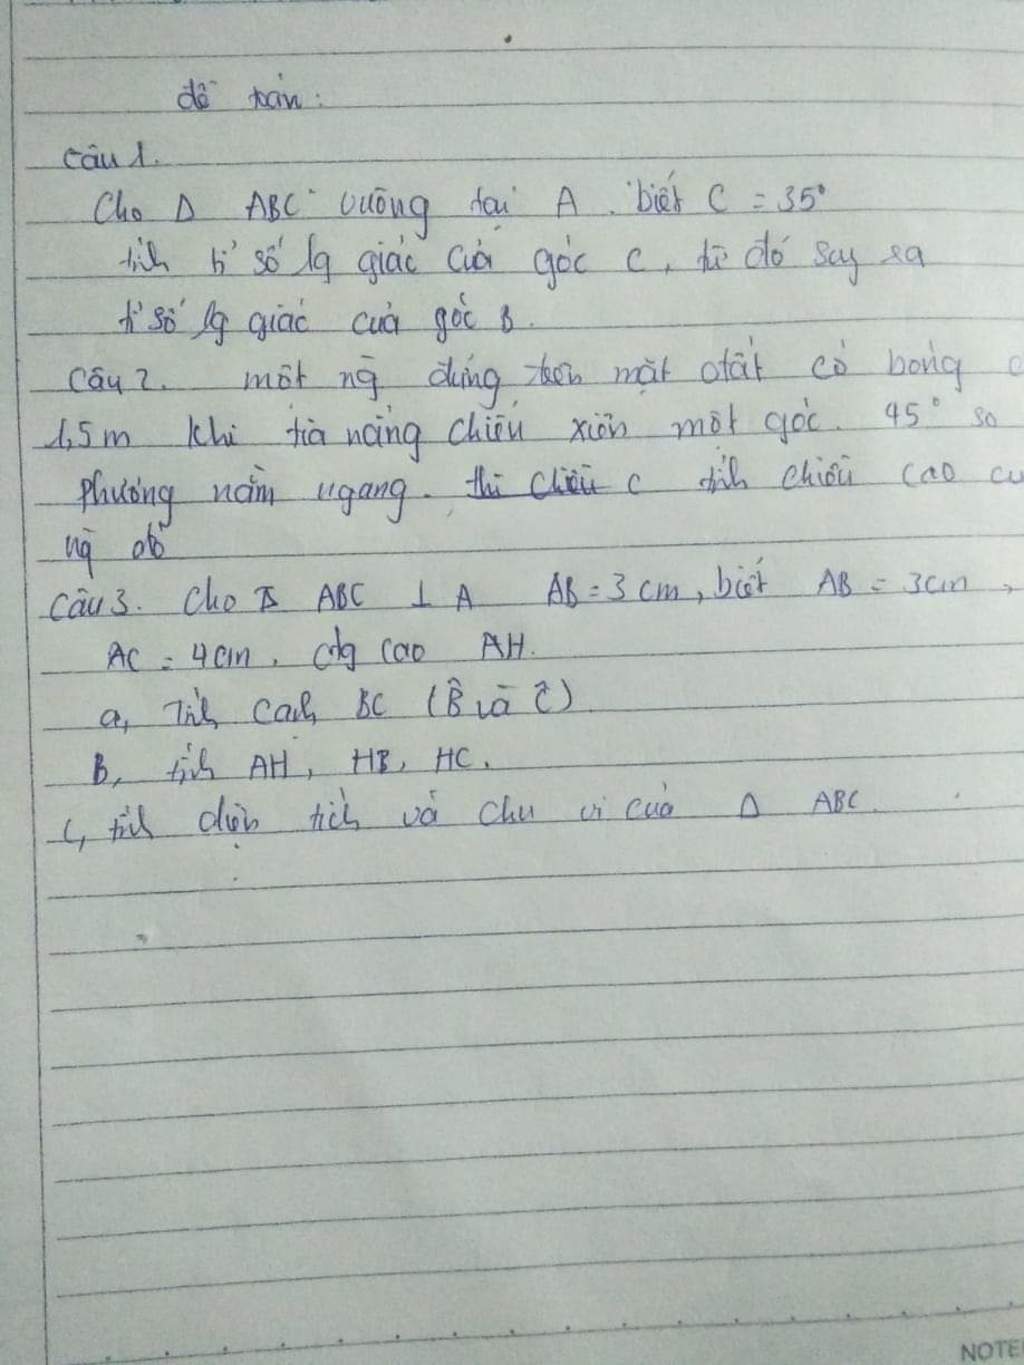 đề toán:
Câu 1.
Cho Δ ABC vuông tại A. biết C = 35°
tính tỉ số lg giác của góc C, từ đó suy ra
tỉ số lg giác của góc B.
Câu 2. một ng đứng trên mặt đất có bóng
1,5m khi tia nắng chiếu xiên một góc. 45° so
phương nằm ngang. thì chiều c tính chiều cao
ng đó
Câu 3. Cho Δ ABC ⊥ A AB = 3 cm, biết AB = 3cm,
AC = 4cm. đg cao AH.
a, Tính cạnh BC (B̂ và Ĉ)
B, tính AH, HB, HC.
c, tính diện tích và chu vi của Δ ABC.
NOTE